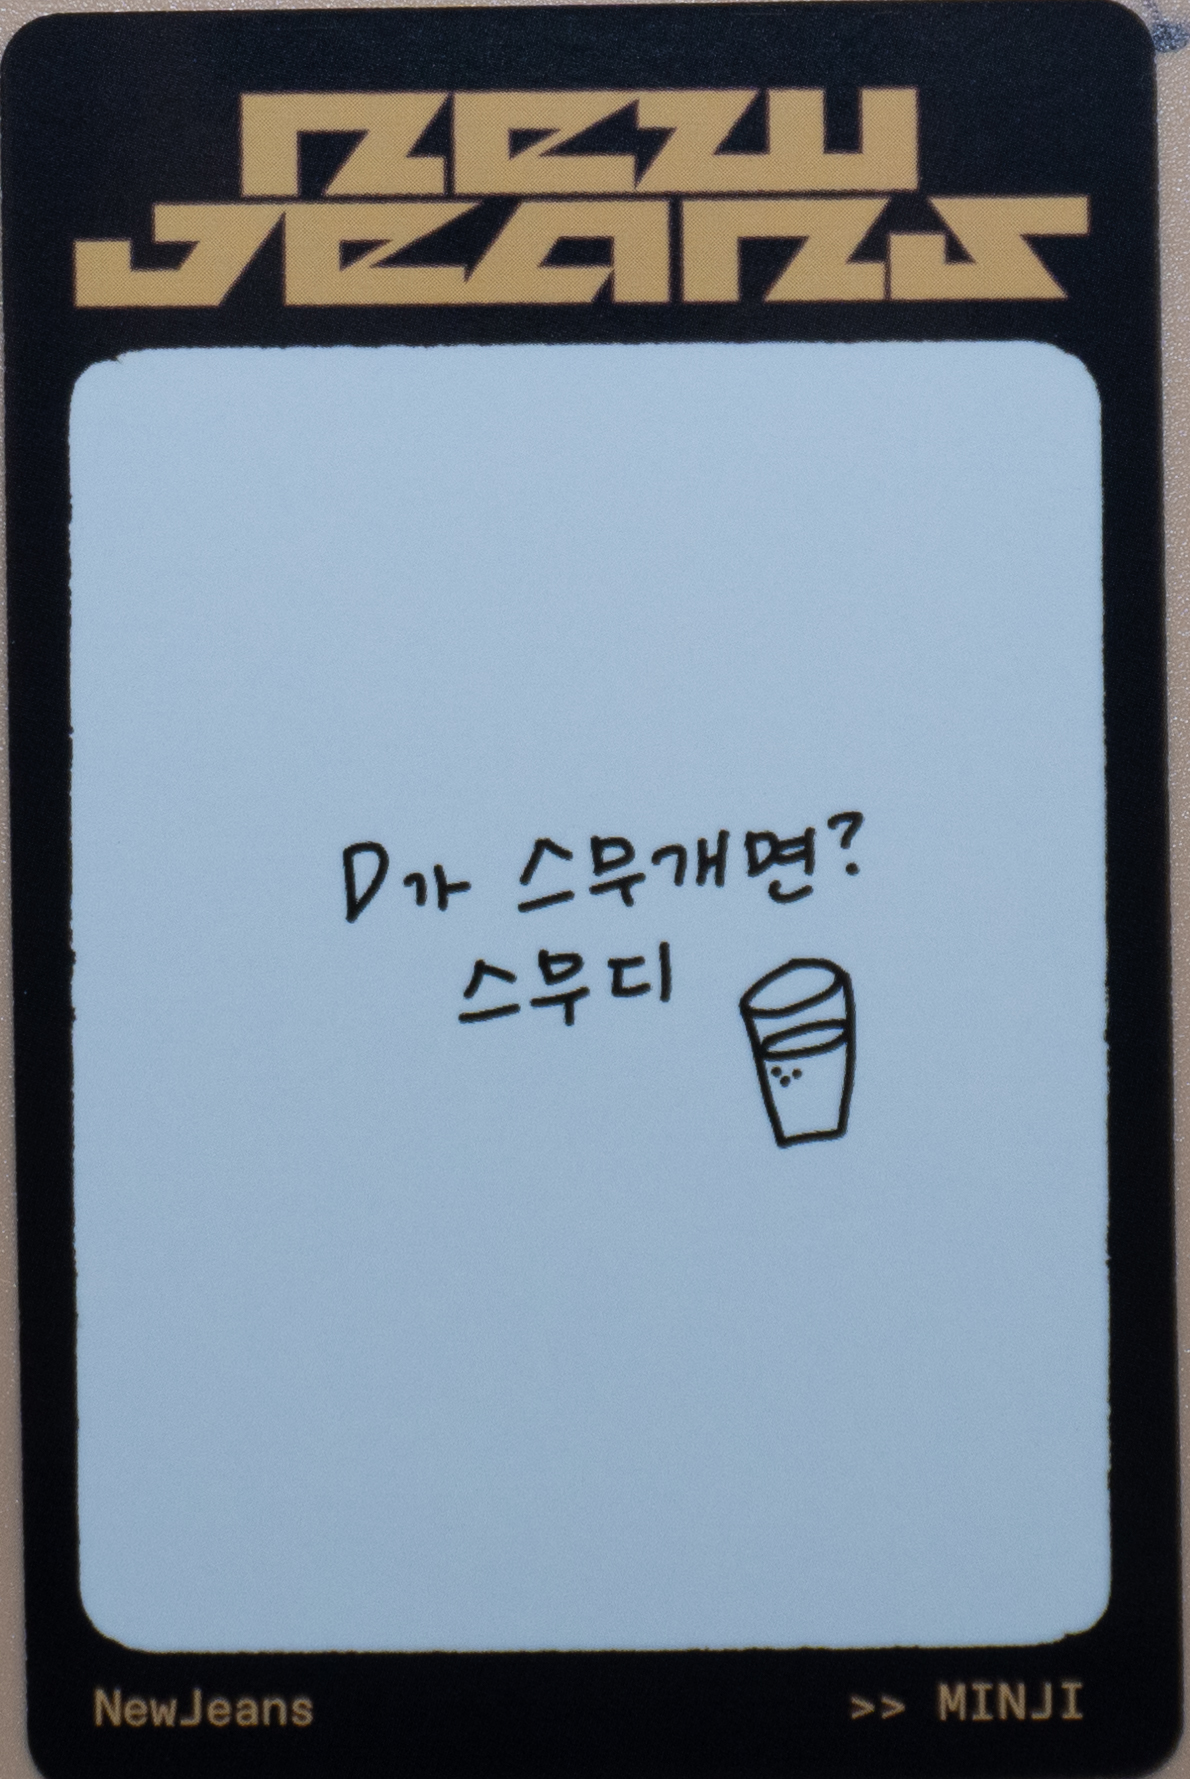 new
jeans
D가 스무개면?
스무디
NewJeans >> MINJI